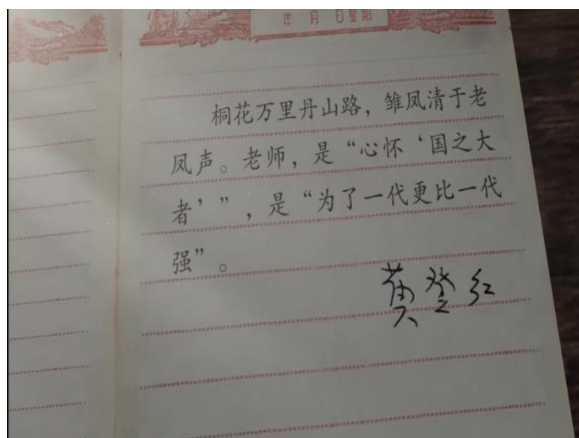 年 月 日 星期
桐花万里丹山路，雏凤清于老
凤声。老师，是“心怀‘国之大
者’”，是“为了一代更比一代
强”。
黄登红